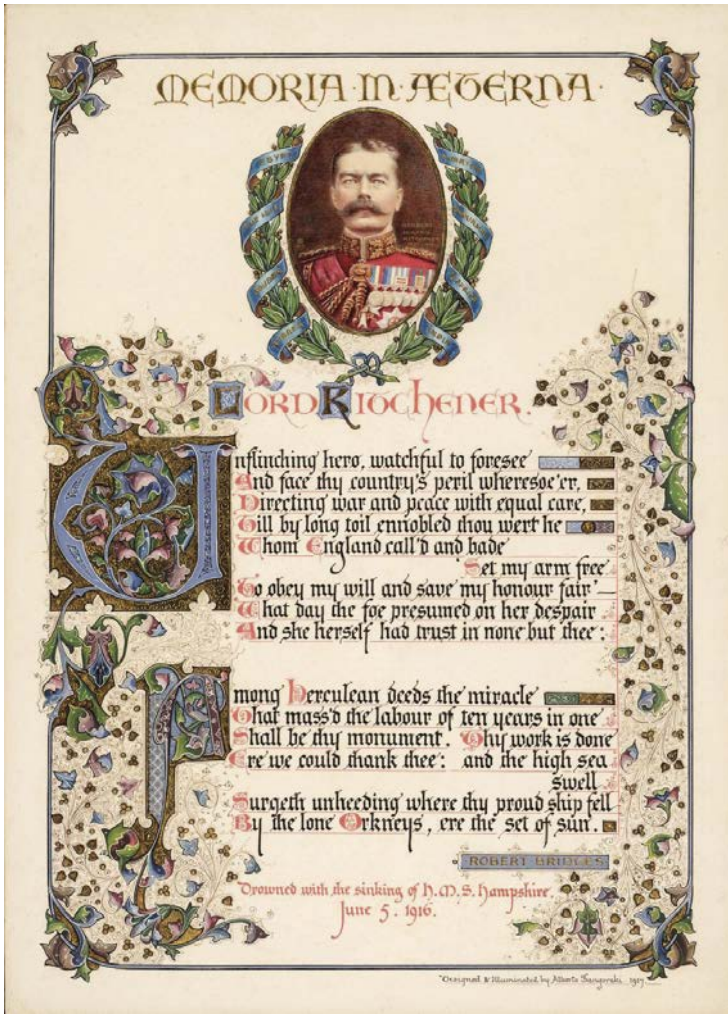 MEMORIA·IN·ÆTERNA·
LORD KITCHENER.
Unflinching hero, watchful to foresee
And face thy country's peril wheresoe'er,
Directing war and peace with equal care,
Till by long toil ennobled thou wert he
Whom England call'd and bade
Set my arm free
To obey my will and save my honour fair'—
What day the foe presumed on her despair
And she herself had trust in none but thee:
Among Herculean deeds the miracle
That mass'd the labour of ten years in one
Shall be thy monument. Thy work is done
Ere we could thank thee: and the high sea
swell
Surgeth unheeding where thy proud ship fell
By the lone Orkneys, ere the set of sun.
ROBERT BRIDGES
Drowned with the sinking of H.M.S. Hampshire.
June 5. 1916.
Designed & Illuminated by Alberto Sangorski. 1917.